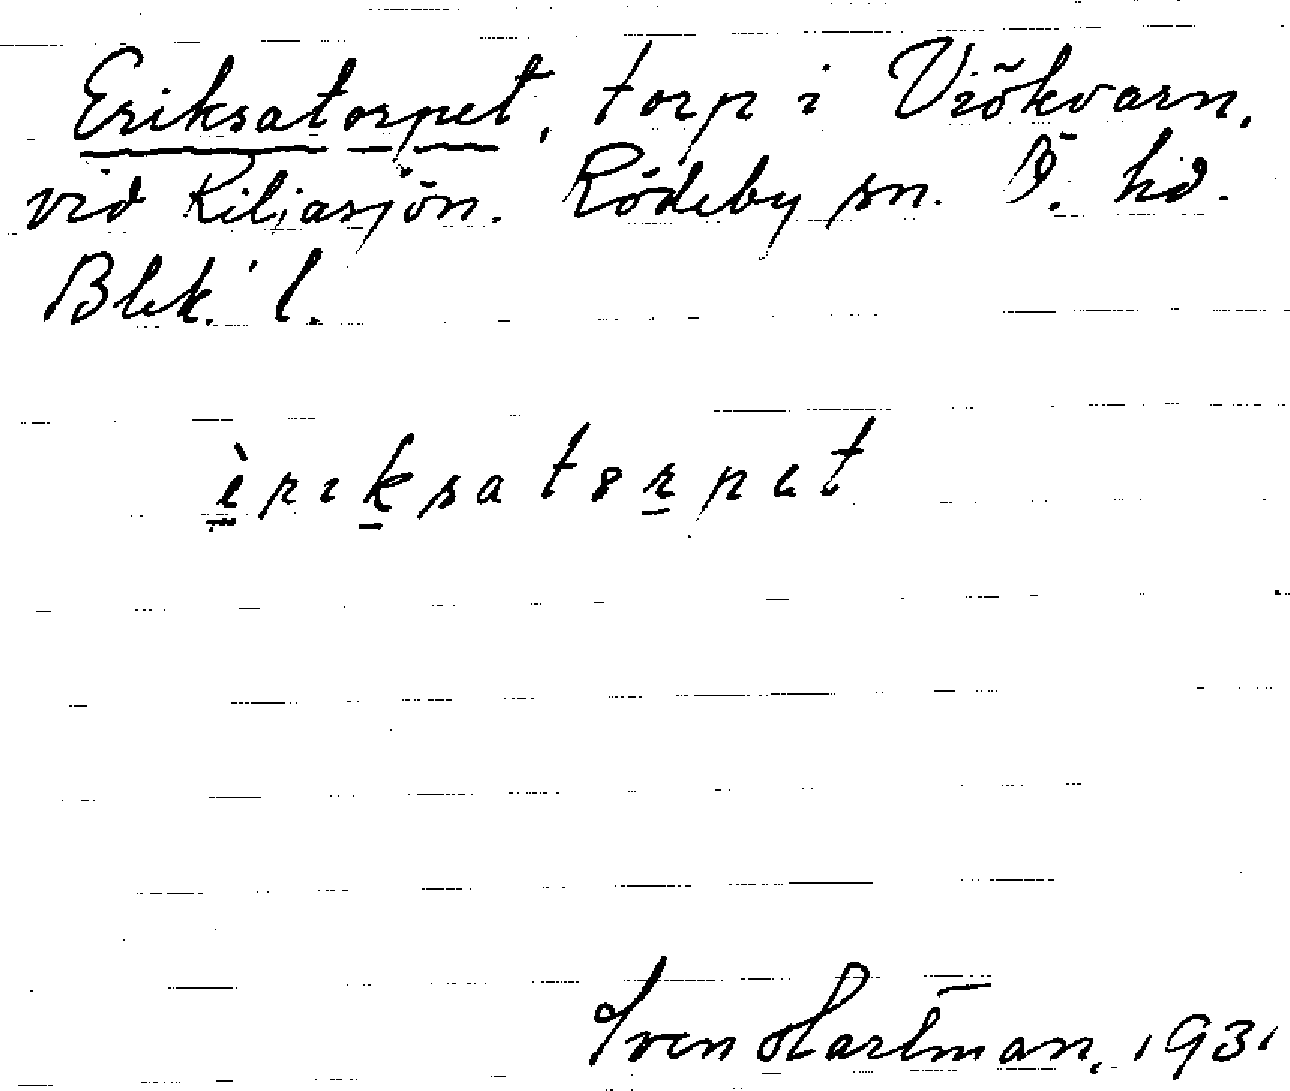 Eriksatorpet, torp i Viökvarn,
vid Kiljasjön. Rödeby sn. Ö. hd.
Blek. l.
èriksatorpet
Sven Hartman, 1931